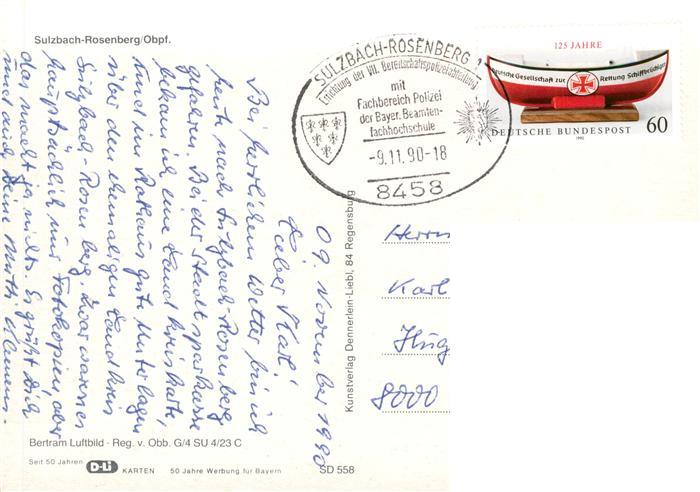 Sulzbach-Rosenberg/Obpf.
SULZBACH-ROSENBERG 1
Errichtung der VII. Bereitschaftspolizeiabteilung
mit
Fachbereich Polizei
der Bayer. Beamten-
fachhochschule
-9.11.90-18
8458
125 JAHRE
Deutsche Gesellschaft zur Rettung Schiffbrüchiger
DEUTSCHE BUNDESPOST 60
1990
09. November 1990
Lieber Karl!
Bei herrlichem Wetter bin ich
heute nach Sulzbach-Rosenberg
gefahren. Bei der Stadtsparkasse
bekam ich eine Landkreiskarte,
und im Rathaus gute Unterlagen
über den ehemaligen Landkreis
Sulzbach-Rosenberg. Zwar waren es
hauptsächlich nur Fotokopien, aber
das macht ja nichts. Es grüßt Dich
und auch Deine Mutti
Herrn
Karl
Hug
8000
Kunstverlag Dennerlein-Liebl, 84 Regensburg
Bertram Luftbild · Reg. v. Obb. G/4 SU 4/23 C
Seit 50 Jahren D-Li KARTEN 50 Jahre Werbung für Bayern
SD 558